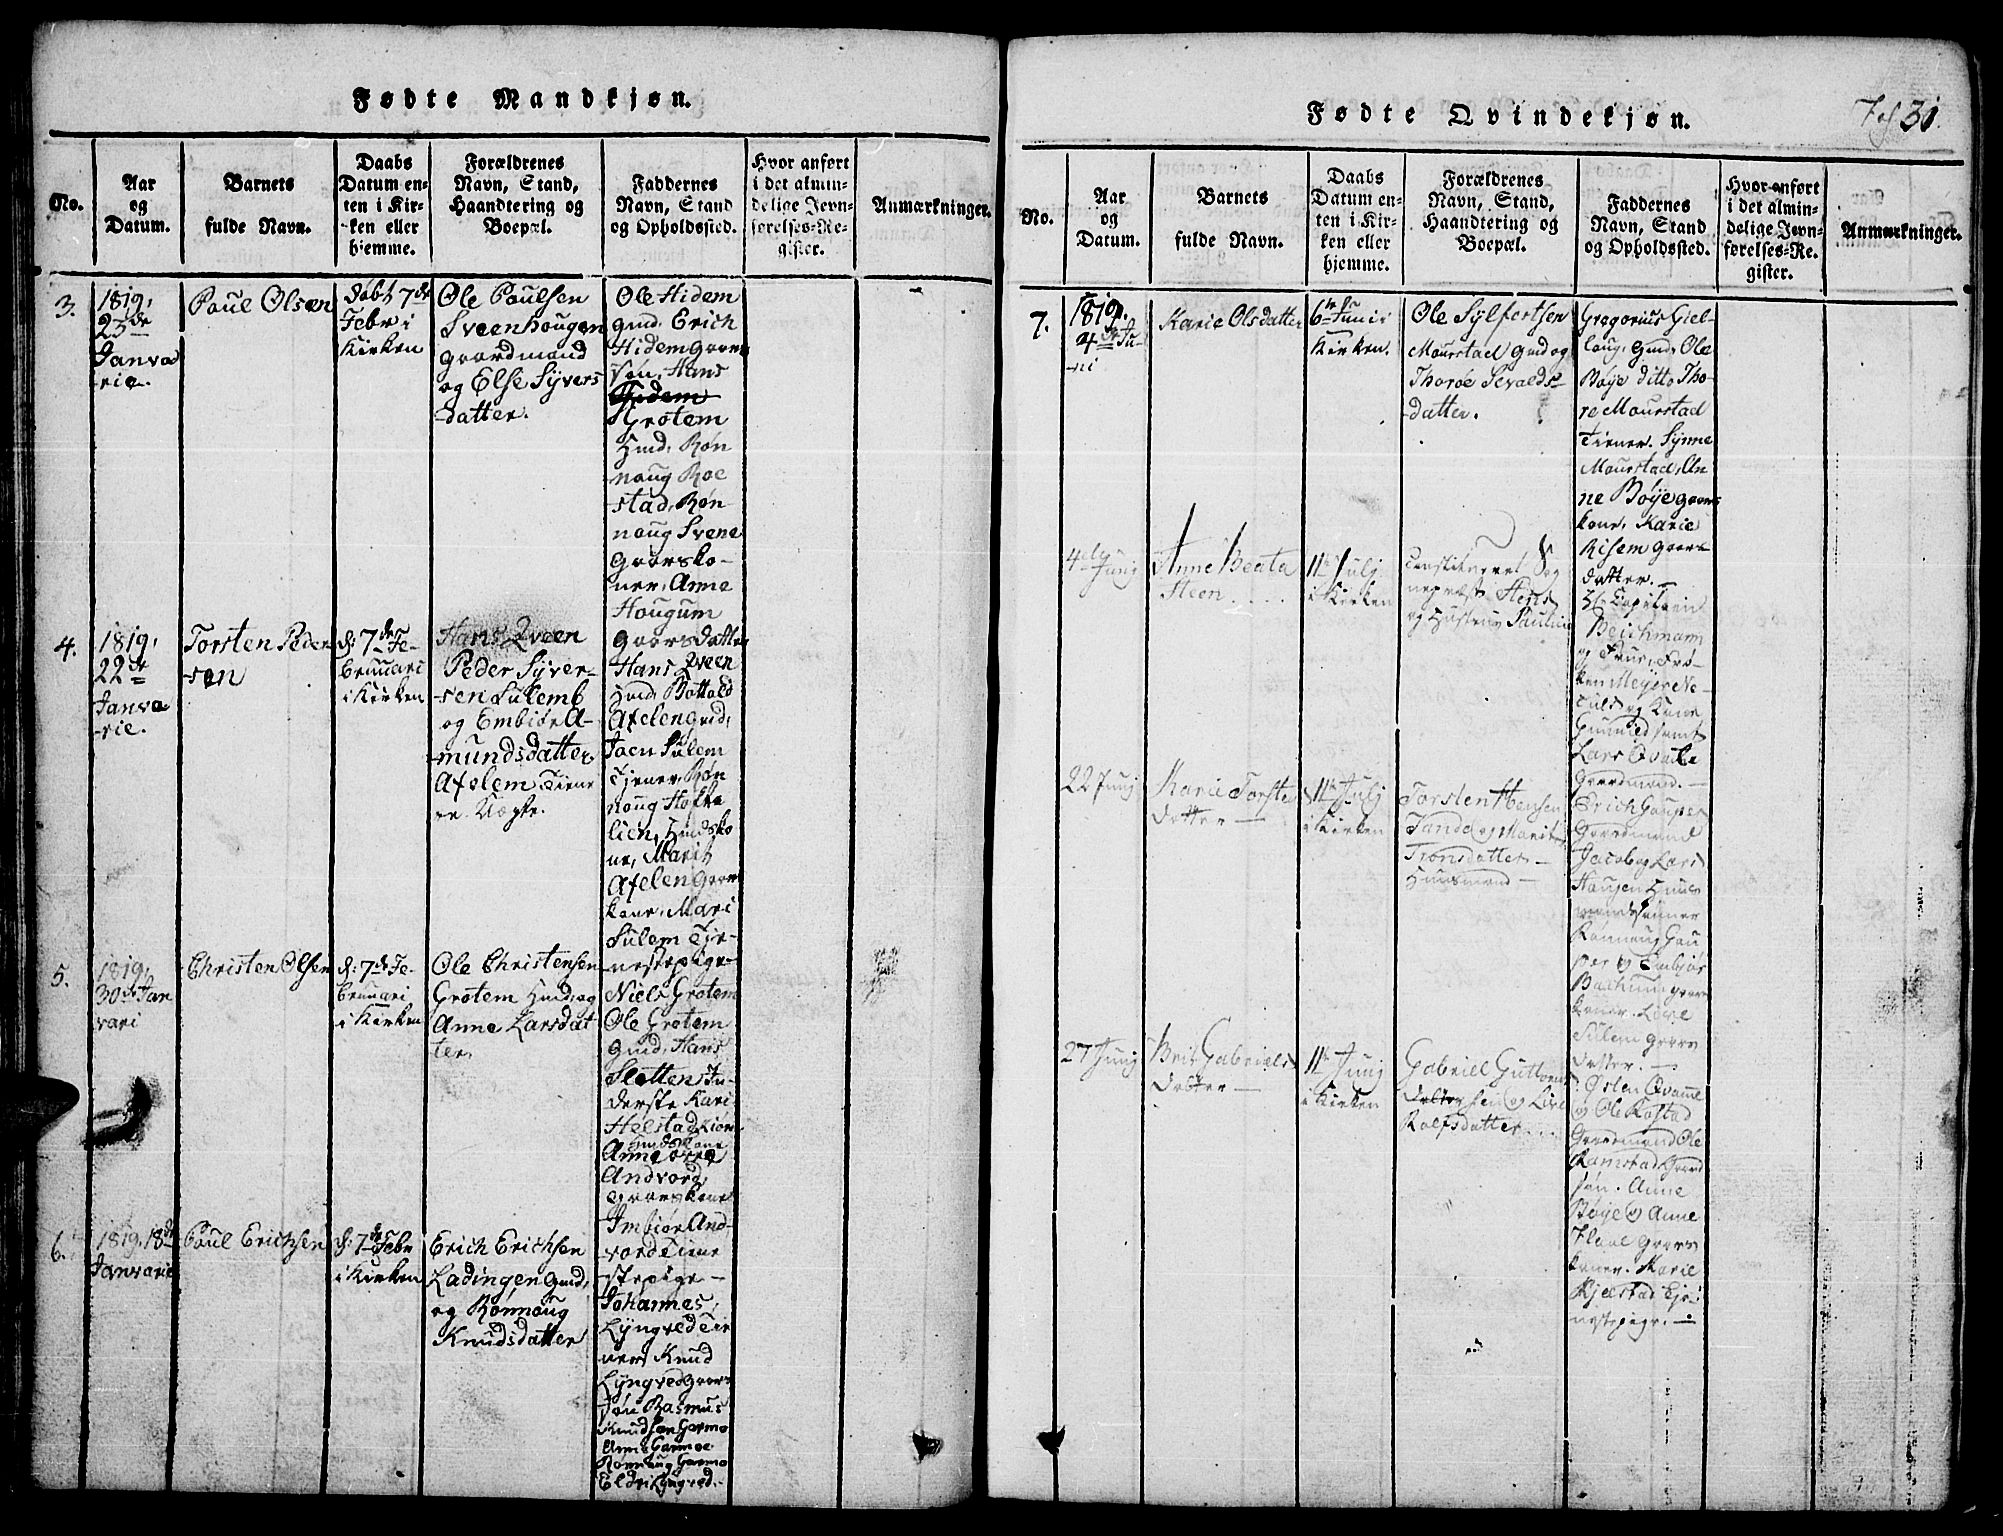 Fødte Mandkjøn.
No.
Aar
og
Datum.
Barnets
fulde Navn.
Daabs
Datum en-
ten i Kir-
ken eller
hjemme.
Forældrenes
Navn, Stand,
Haandtering og
Boepæl.
Faddernes
Navn, Stand
og Opholdssted.
Hvor anført
i det almin-
delige Jevn-
førelses-Re-
gister.
Anmærkninger.
3.
1819,
23de
Janva
rie.
Poul Olsen
Døbt 7de
Febr i
Kirken
Ole Poulsen
Sveenhougen
gaardmand
og Else Syvers
datter.
Ole Hidem
gmd, Erich
Hidem gaards
søn, Hans
Grotem
Hmd, Røn
naug Roe
stad, Røn-
naug Svene
gaarsko-
ner, Anne
Hougum
gaarsdatter
4.
1819,
22de
Janva
rie.
Torsten Peder
sen
d: 7de Fe-
bruuari
i Kirken
Hans Qveen
Peder Syver-
sen Sulemb
og Embiør A-
mundsdatter
Afelem, Tiene
re. Uægte.
Hans Qveen
Hmd, Bottold
Afelen gmd,
Joen Sulem
Tjener, Røn
naug Hofte
lien, Hmdsko
ne, Marit
Afelen gaar
kone, Mari
Sulem Tje-
nestepige
5.
1819,
30de Jan
vari
Christen Olsen
d: 7de Fe-
bruuari
i Kirken
Ole Christensen
Grotem Hmd, og
Anne Larsdat
ter.
Niels Grotem
Ole Grotem
gmd, Hans
Sletten In-
derste Kari
Helstad
Hmdskone
Anne
Andvord
gaarskone
Imbiør And-
vord Tiene
stepige
6.
1819, 18de
Janvarie
Poul Erichsen
d: 7de Febr
i Kirken
Erich Erichsen
Ladingen gmd,
og Rønnoug
Knudsdatter
Johannes
Lyngved Tie
ner, Knud
Lyngved gaars
søn Rasmus
Knudsen Garmo
Anne Garmoe
Rønnaug Garmo
Eldri Lyngved.
Fødte Qvindekjøn.
31.
No.
Aar
og
Datum.
Barnets
fulde Navn.
Daabs
Datum en-
ten i Kir-
ken eller
hjemme.
Forældrenes
Navn, Stand,
Haandtering og
Boepæl.
Faddernes
Navn, Stand
og Opholdssted.
Hvor anført
i det almin-
delige Jevn-
førelses-Re-
gister.
Anmærkninger.
7.
1819.
4de Ju-
ni
Karie Olsdatter
6te Juni i
Kirken.
Ole Sylfertsen
Mourstad gmd og
Thorøe Sevalds-
datter.
Gregorius Giel-
laug, gmd, Ole
Bøye ditto Tho-
re Mourstad
Tiener. Synne
Mourstad, An
ne Bøye gaars
kone, Karie
Risem gaars
datter.
4de Junij
Anne Beata
Steen
11te Julj
i Kirken
Constitueret Sog
neprest Steen
og Hustrue Pauline
Hr. Capitain
Beichmann
og Frue, Frø-
ken Meyer
og
samt
Lars Qvale
Gaardmand.
22 Junij
Karie Torsten
datter
11te Julj
i Kirken
Torsten Hansen
Tande og Marit
Tronsdatter
Huusmand
Erich Gauper
Gaardmand
Jacob og Lars
Haugen Huus
mandssønner
Rønnaug Gau
per og Embjør
Bachum gaars
koner. Live
Sulem gaars
datter.
27 Junij
Brit Gabriels
datter
11te Junj
i Kirken
Gabriel Guttorms
sen og Live
Rolfsdatter
Østen Qvamme
og Ole Rostad
Gaardmænd Ole
Ramstad Gaard
søn. Anne
Bøye og Anne
gaars
koner. Marie
Kjæstad Tje-
nestepige.